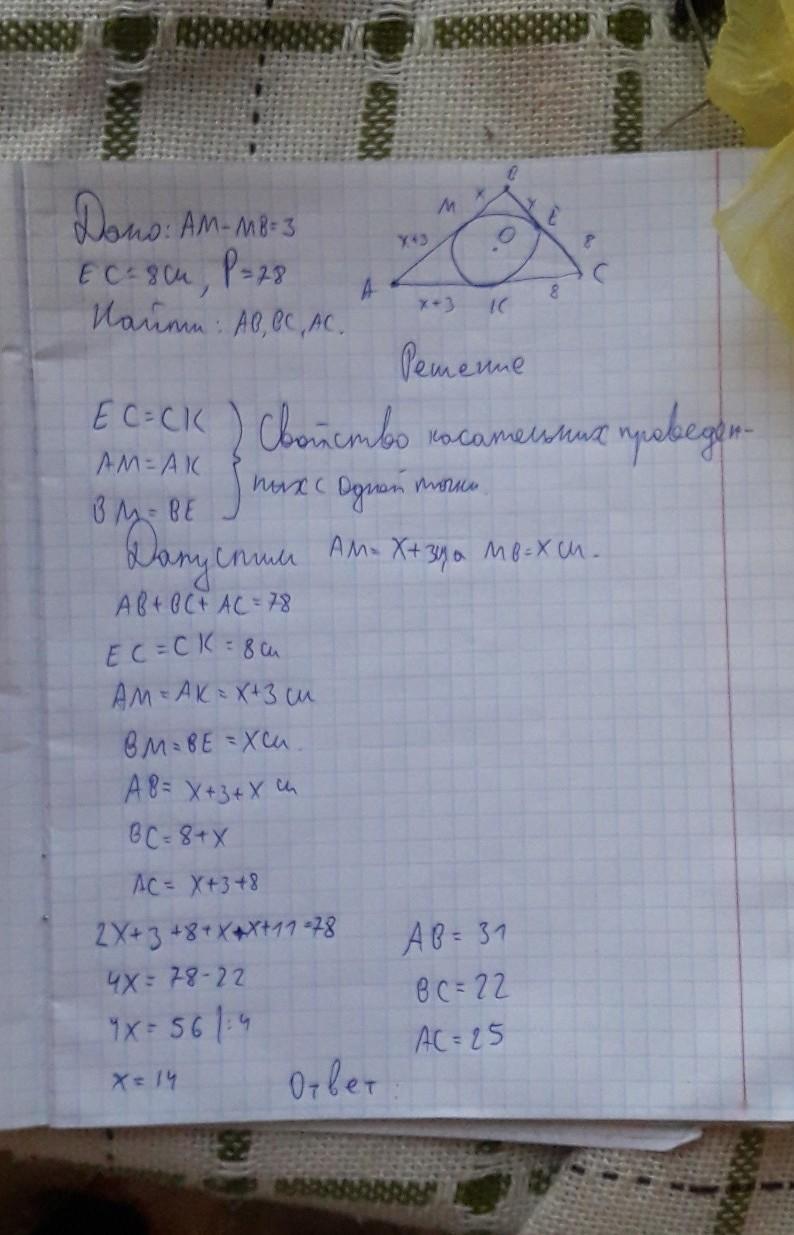 Дано: AM - MB = 3
EC = 8 см, P = 78
Найти: AB, BC, AC.
B
x x
M E
x+3 O 8
A C
x+3 K 8
Решение
EC = CK
AM = AK
BM = BE
Свойство касательних проведен-
ных с одной точки.
Допустим AM = x+3 см, а MB = x см.
AB + BC + AC = 78
EC = CK = 8 см
AM = AK = x+3 см
BM = BE = x см.
AB = x+3+x см
BC = 8+x
AC = x+3+8
2x+3+8+x+x+11=78
4x = 78-22
4x = 56 |:4
x = 14
AB = 31
BC = 22
AC = 25
Ответ: